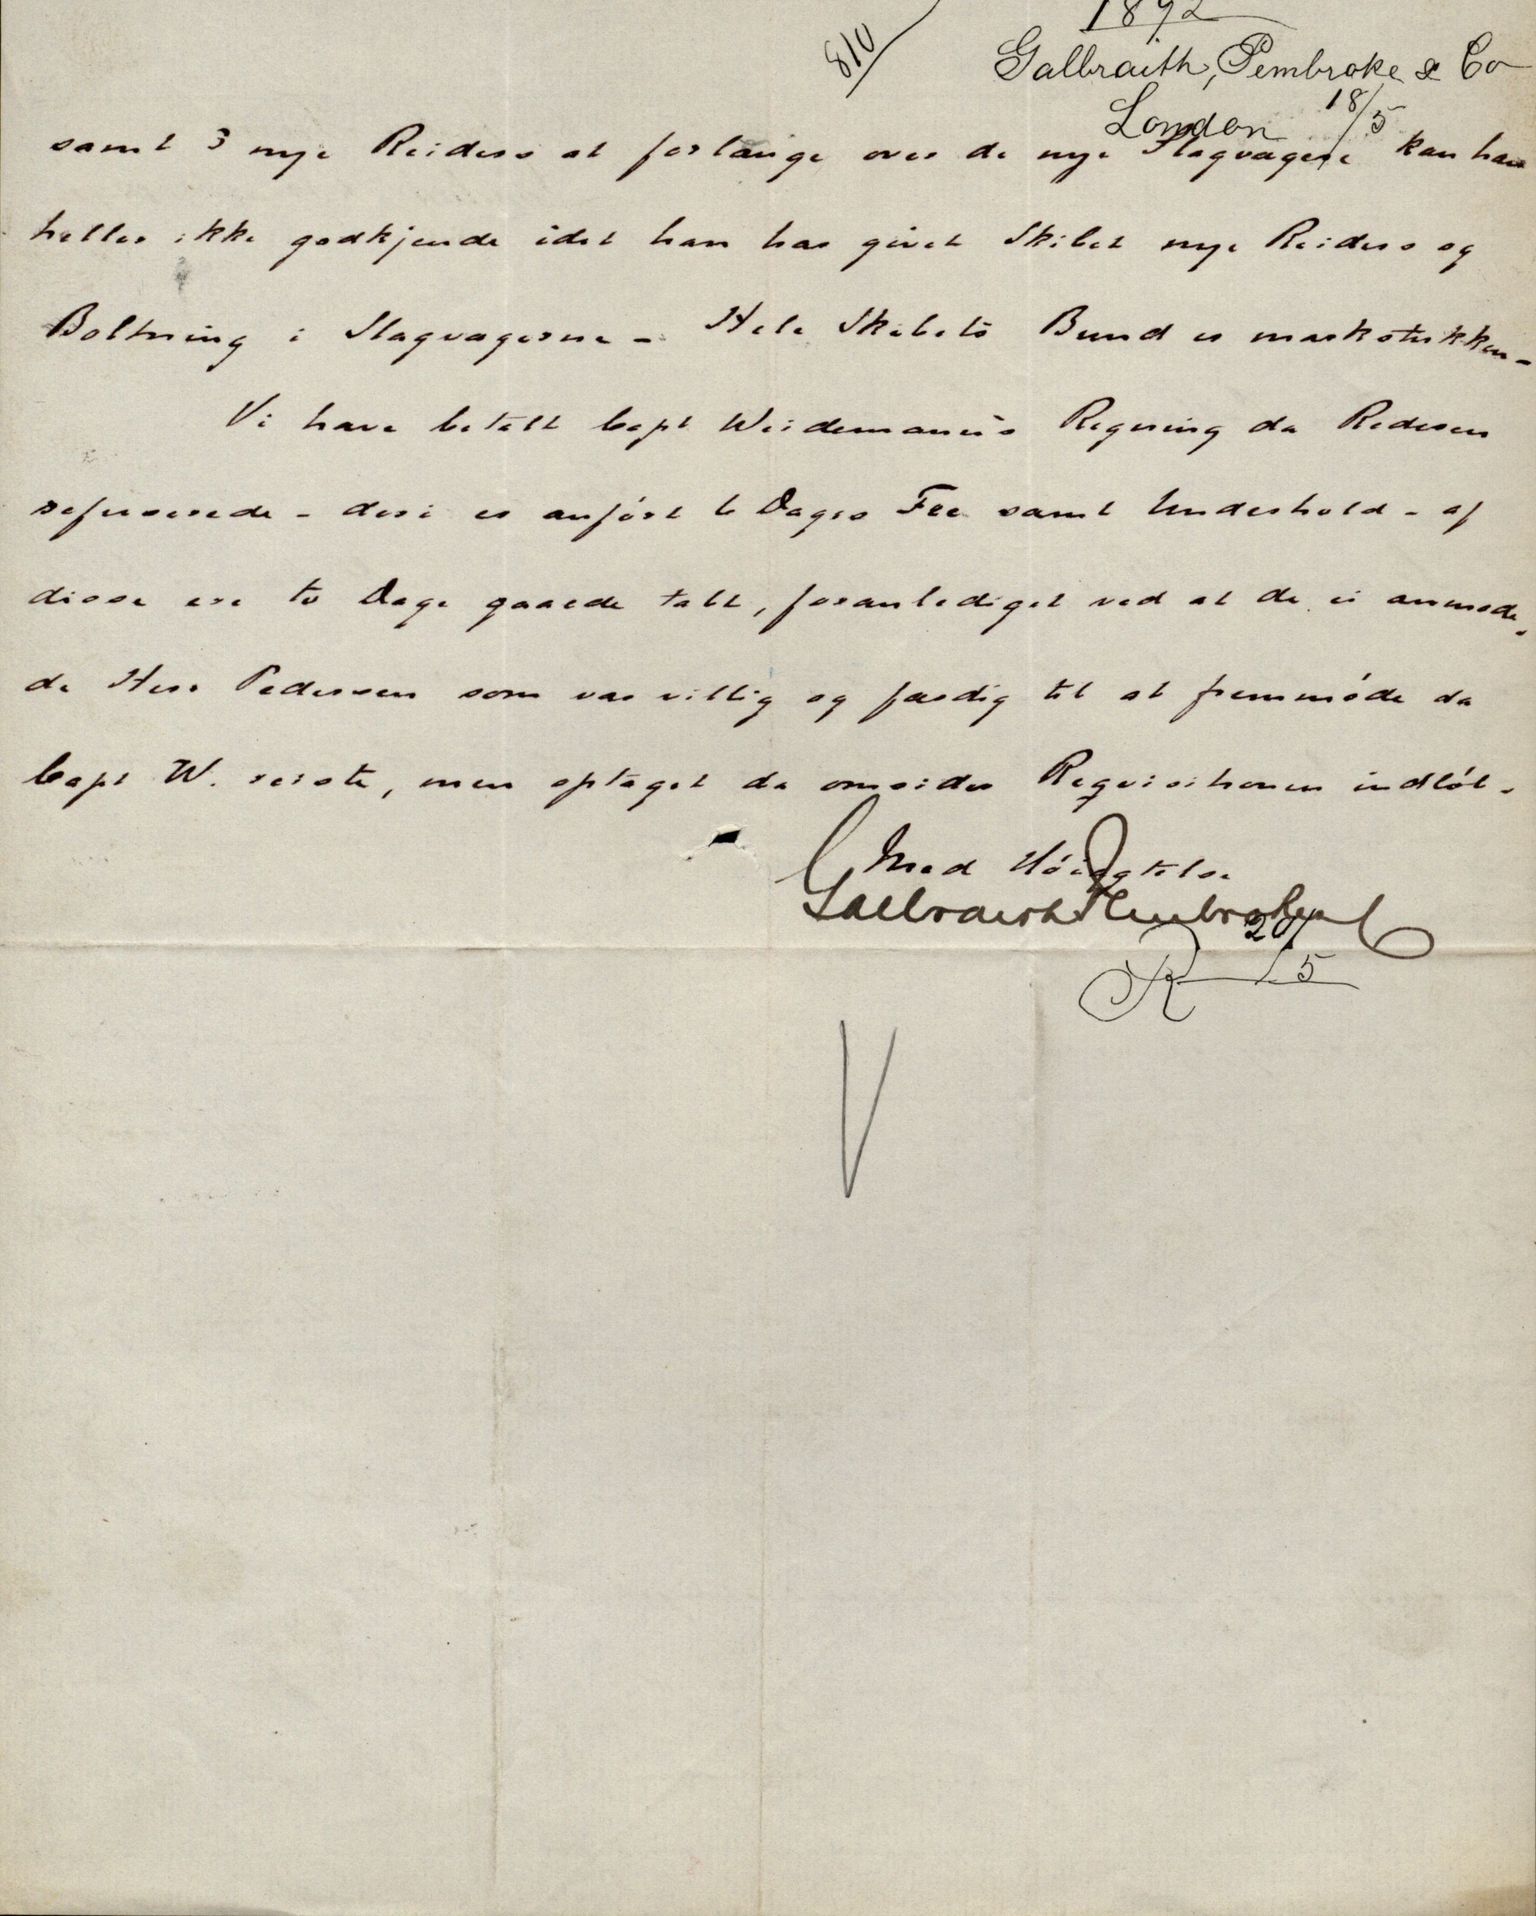 1892
810
Galbraith, Pembroke & Co
London 18/5
samt 3 nye Reiders at forlange over de nye Slagvagere kan han
heller ikke godkjende idet han har givet Skibet nye Reiders og
Boltning i Slagvagerne - Hele Skibets Bund er markstukken -
Vi have betalt Capt Weidemann's Regning da Rederen
refuserede - deri er anført 6 Dages Fee samt Underhold - af
disse ere to Dage gaaede tabt, foranlediget ved at de ei anmode
de Herr Pedersen som var villig og færdig til at fremmøde da
Capt W. reiste, men optaget da omsider Reqvisitionen indløb -
Med Høiagtelse
Galbraith Pembroke & Co
R 20/5